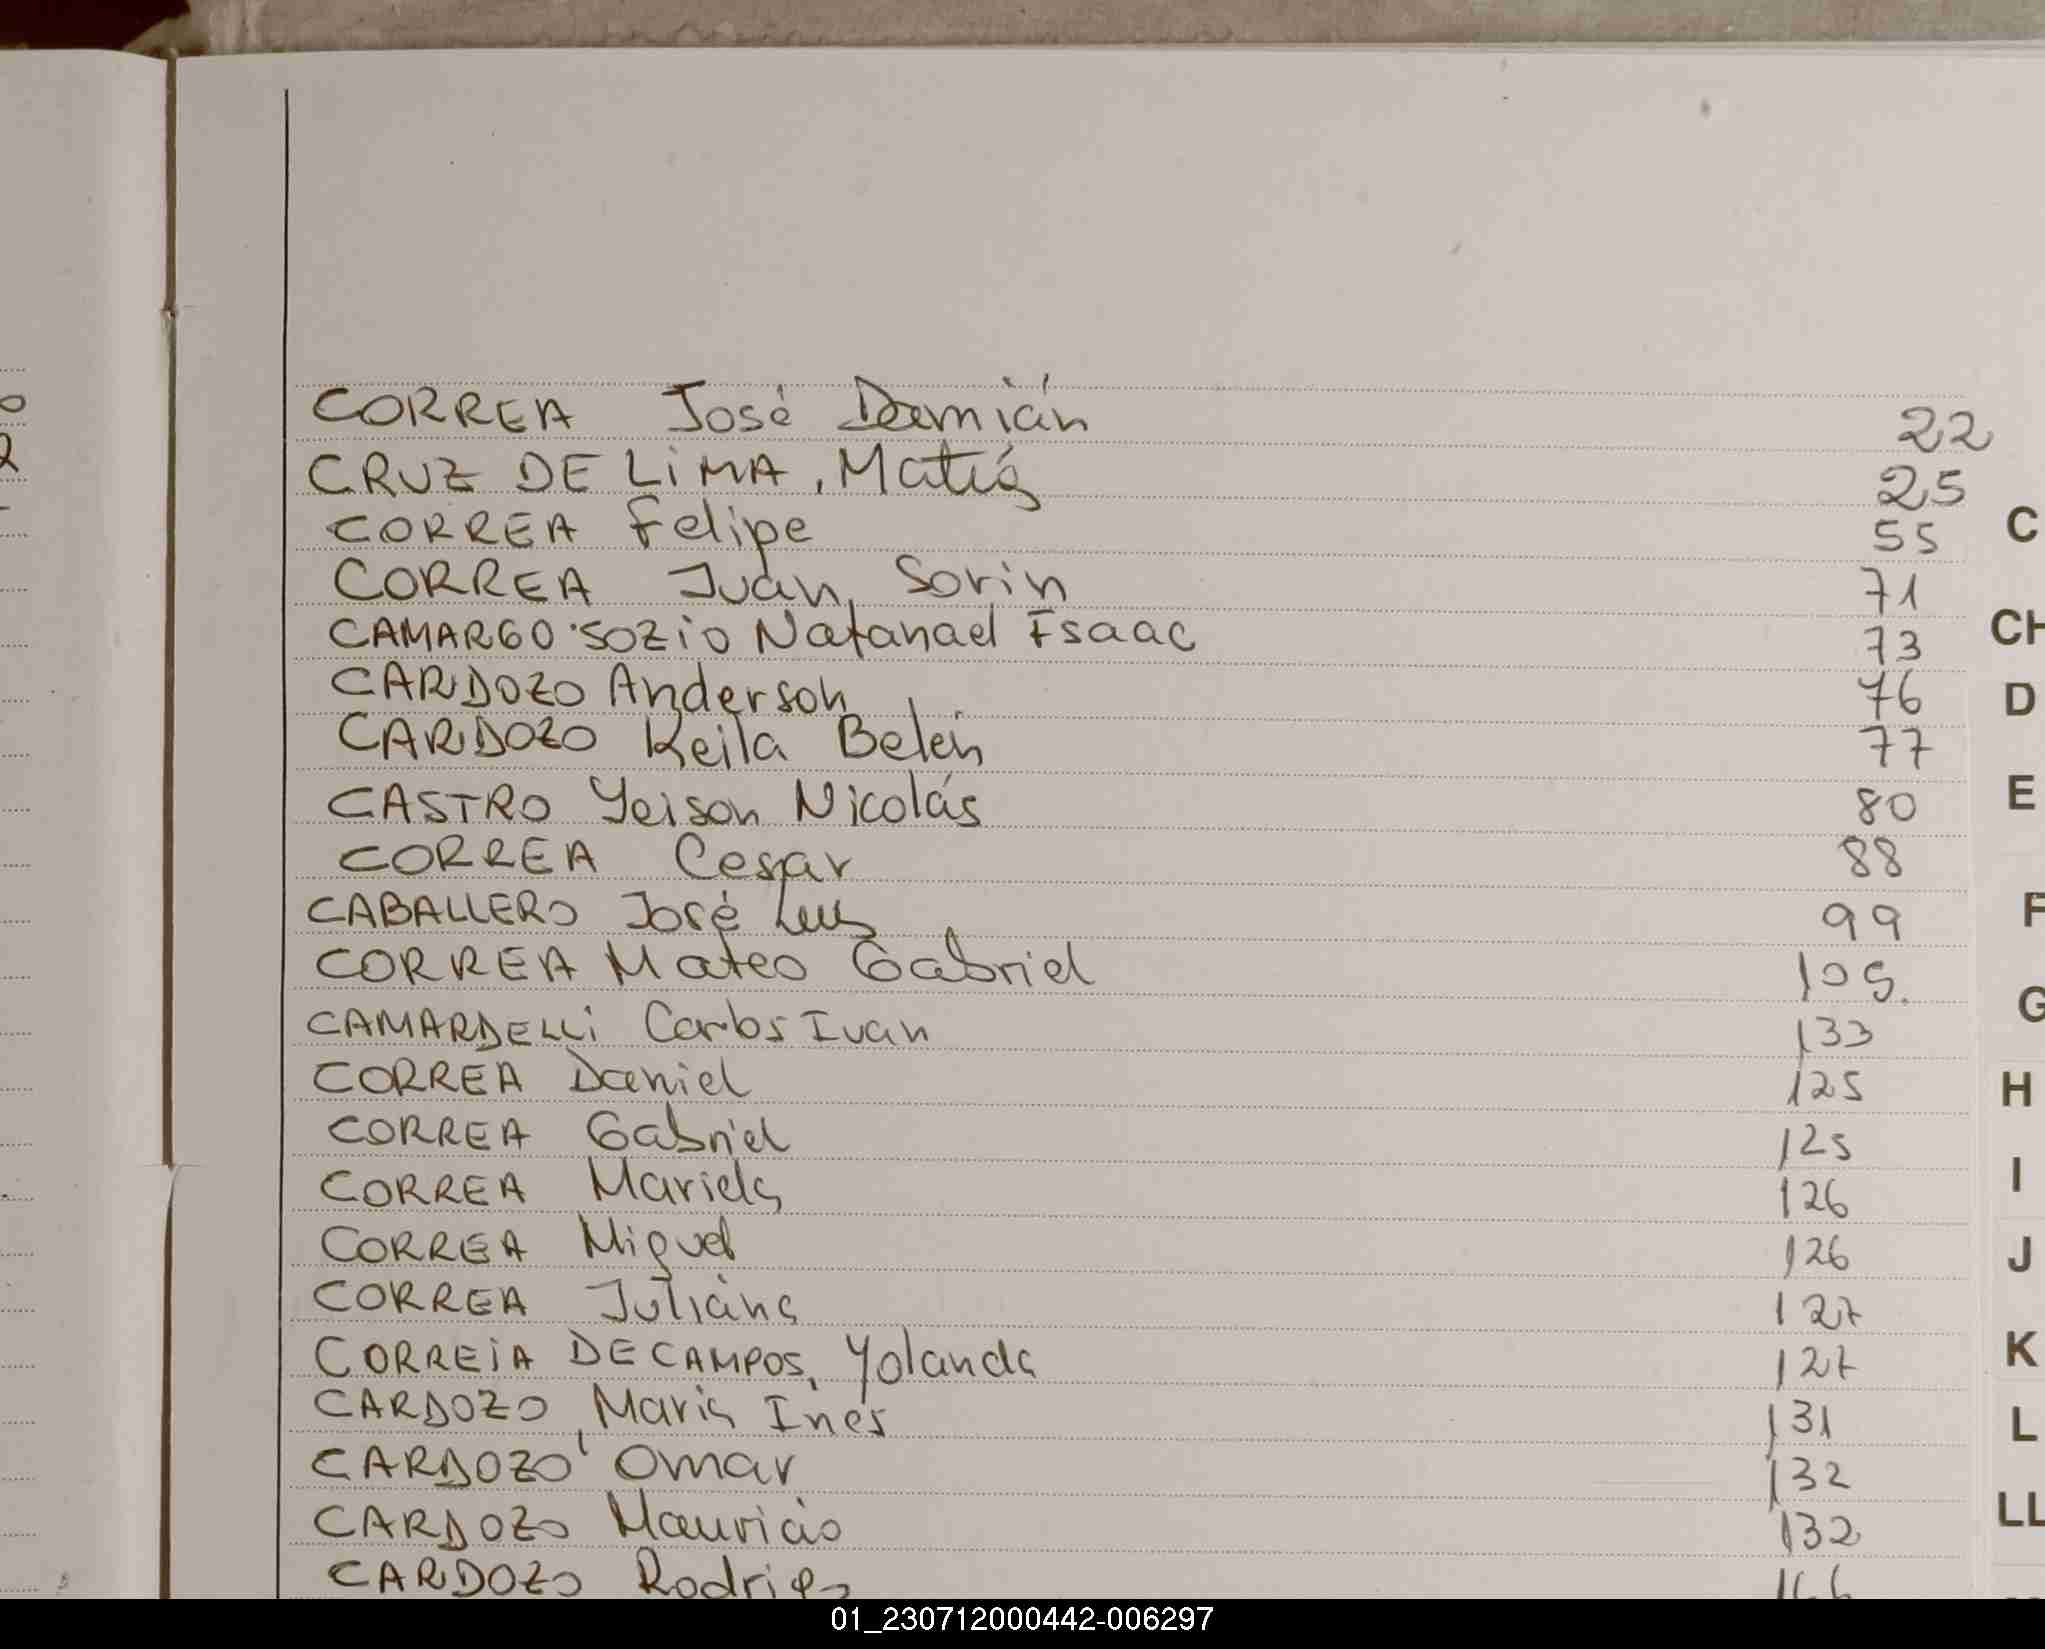 CORREA José Damián 22
CRUZ DE LIMA, Matiás 25
CORREA Felipe 55
CORREA Juán Sorin 71
CAMARGO SOZIO Natanael Isaac 73
CARDOZO Anderson 76
CARDOZO Keila Belén 77
CASTRO Yeison Nicolás 80
CORREA Cesar 88
CABALLERO José Luis 99
CORREA Mateo Gabriel 109.
CAMARDELLI Carlos Ivan 133
CORREA Daniel 125
CORREA Gabriel 125
CORREA Mariela 126
CORREA Miguel 126
CORREA Juliana 127
CORREIA DE CAMPOS, Yolanda 127
CARDOZO, Maria Inés 131
CARDOZO Omar 132
CARDOZO Mauricio 132
CARDOZO Rodrigo
C
CH
D
E
F
G
H
I
J
K
L
LL
01_230712000442-006297